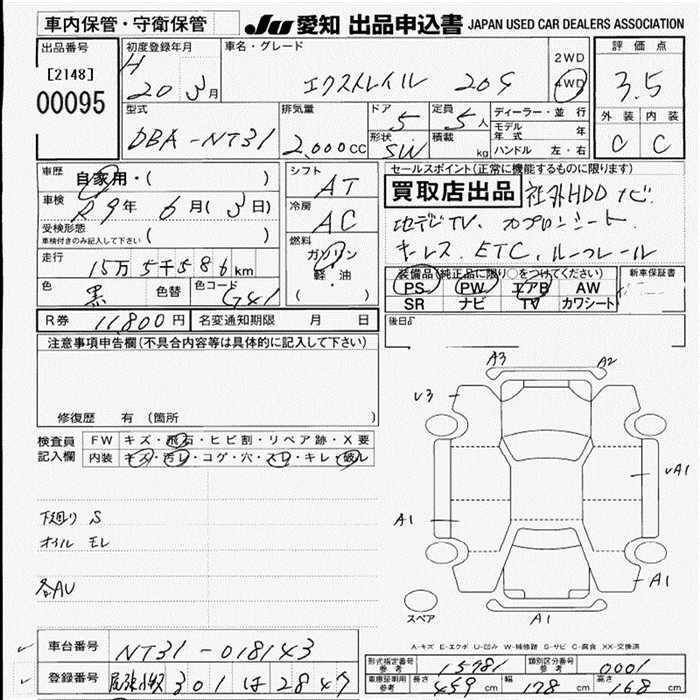 車内保管・守衛保管
JU 愛知 出品申込書 JAPAN USED CAR DEALERS ASSOCIATION
出品番号 初度登録年月 車名・グレード 2WD 評価点
[2148] H 20年 3月 エクストレイル 20S 4WD 3.5
00095
型式 排気量 ドア 定員 ディーラー・並行 外装 内装
DBA-NT31 2.000CC 5 5人 モデル年式 年 C C
形状 SW 積載 kg ハンドル 左・右
車歴 自家用・( )
シフト AT
セールスポイント(正常に機能するものに限ります)
車検 R9年 6月(3日)
買取店出品 社外HDDナビ
受検形態 ( )
車検付きのみ記入して下さい
冷房 AC
地デジTV.
走行 15万5千586km
燃料 ガソリン 軽・油 ( )
キーレス. ETC. ルーフレール
色 黒 色替 色コード G41
装備品(純正品に限り○をつけてください) 新車保証書
PS PW エアB AW
SR ナビ TV カワシート
R券 11,800円 名変通知期限 月 日
後日
注意事項申告欄(不具合内容等は具体的に記入して下さい)
修復歴 有 (箇所 )
検査員 FW キズ・飛石・ヒビ割・リペア跡・X要
記入欄 内装 キズ・汚レ・コゲ・穴・スレ・キレ・破ル
A3 A2
V3
A1
A1
A1
スペア A1
下廻り S
オイル モレ
各AU
A-キズ E-エクボ U-凹み W-補修跡 S-サビ C-腐食 XX-交換済
車台番号 NT31-018143
登録番号 301 は 2847
形式指定番号 参考 15781 類別区分番号 参考 0001
車庫証明用 参考 長さ 459cm 幅 178cm 高さ 168cm